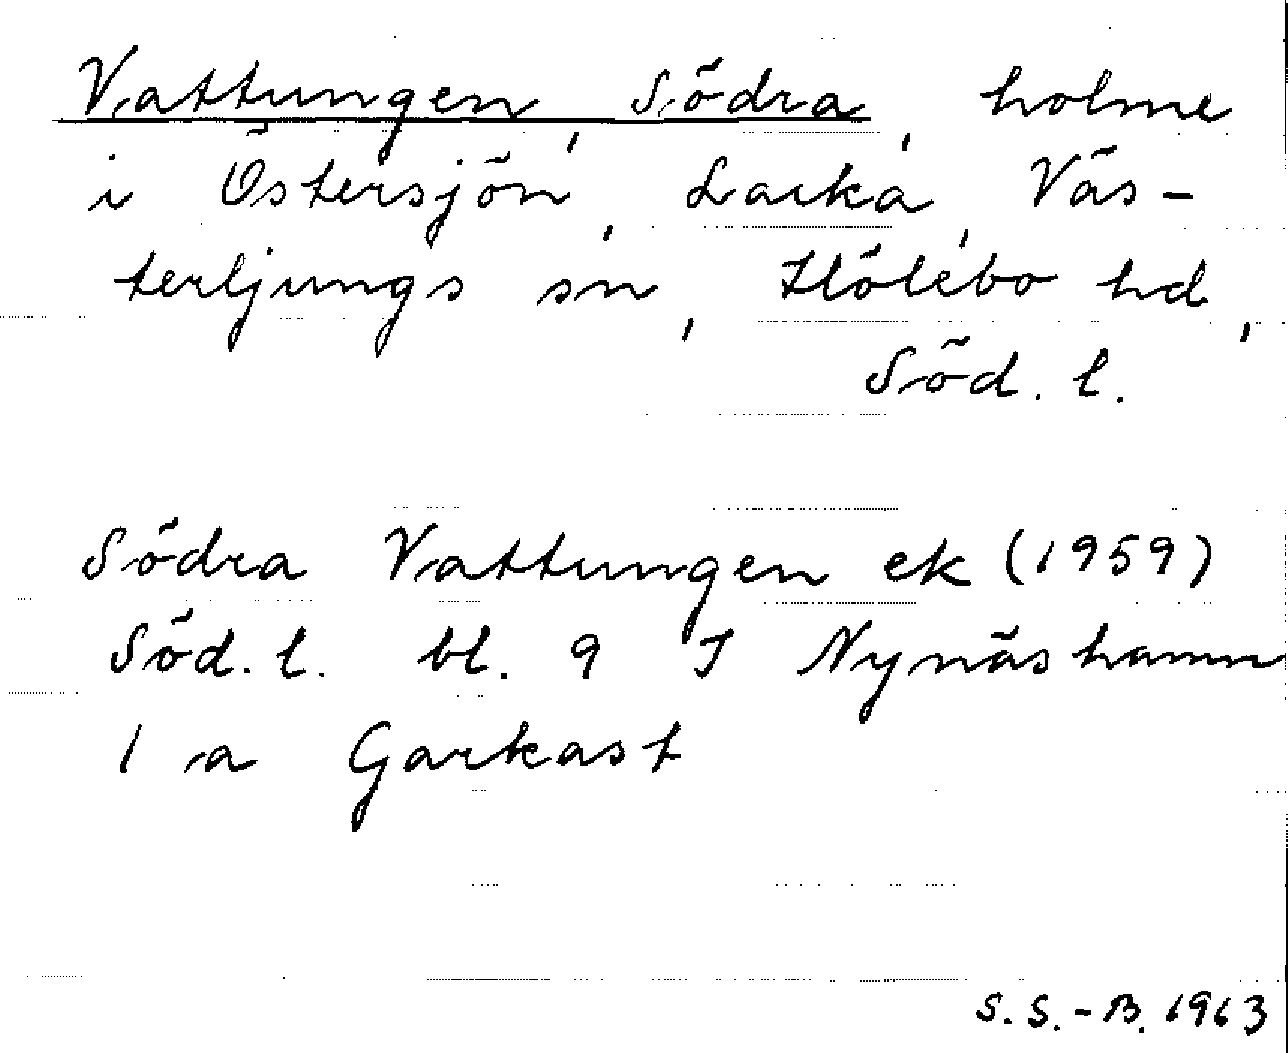 Vattungen, Södra, holme
i Östersjön, Lacka, Väs-
terljungs sn, Hölebo hd,
Söd. l.
Södra Vattungen ek (1959)
Söd. l. bl. 9 I Nynäshamn
1 a Garkast
S. S.-B. 1963